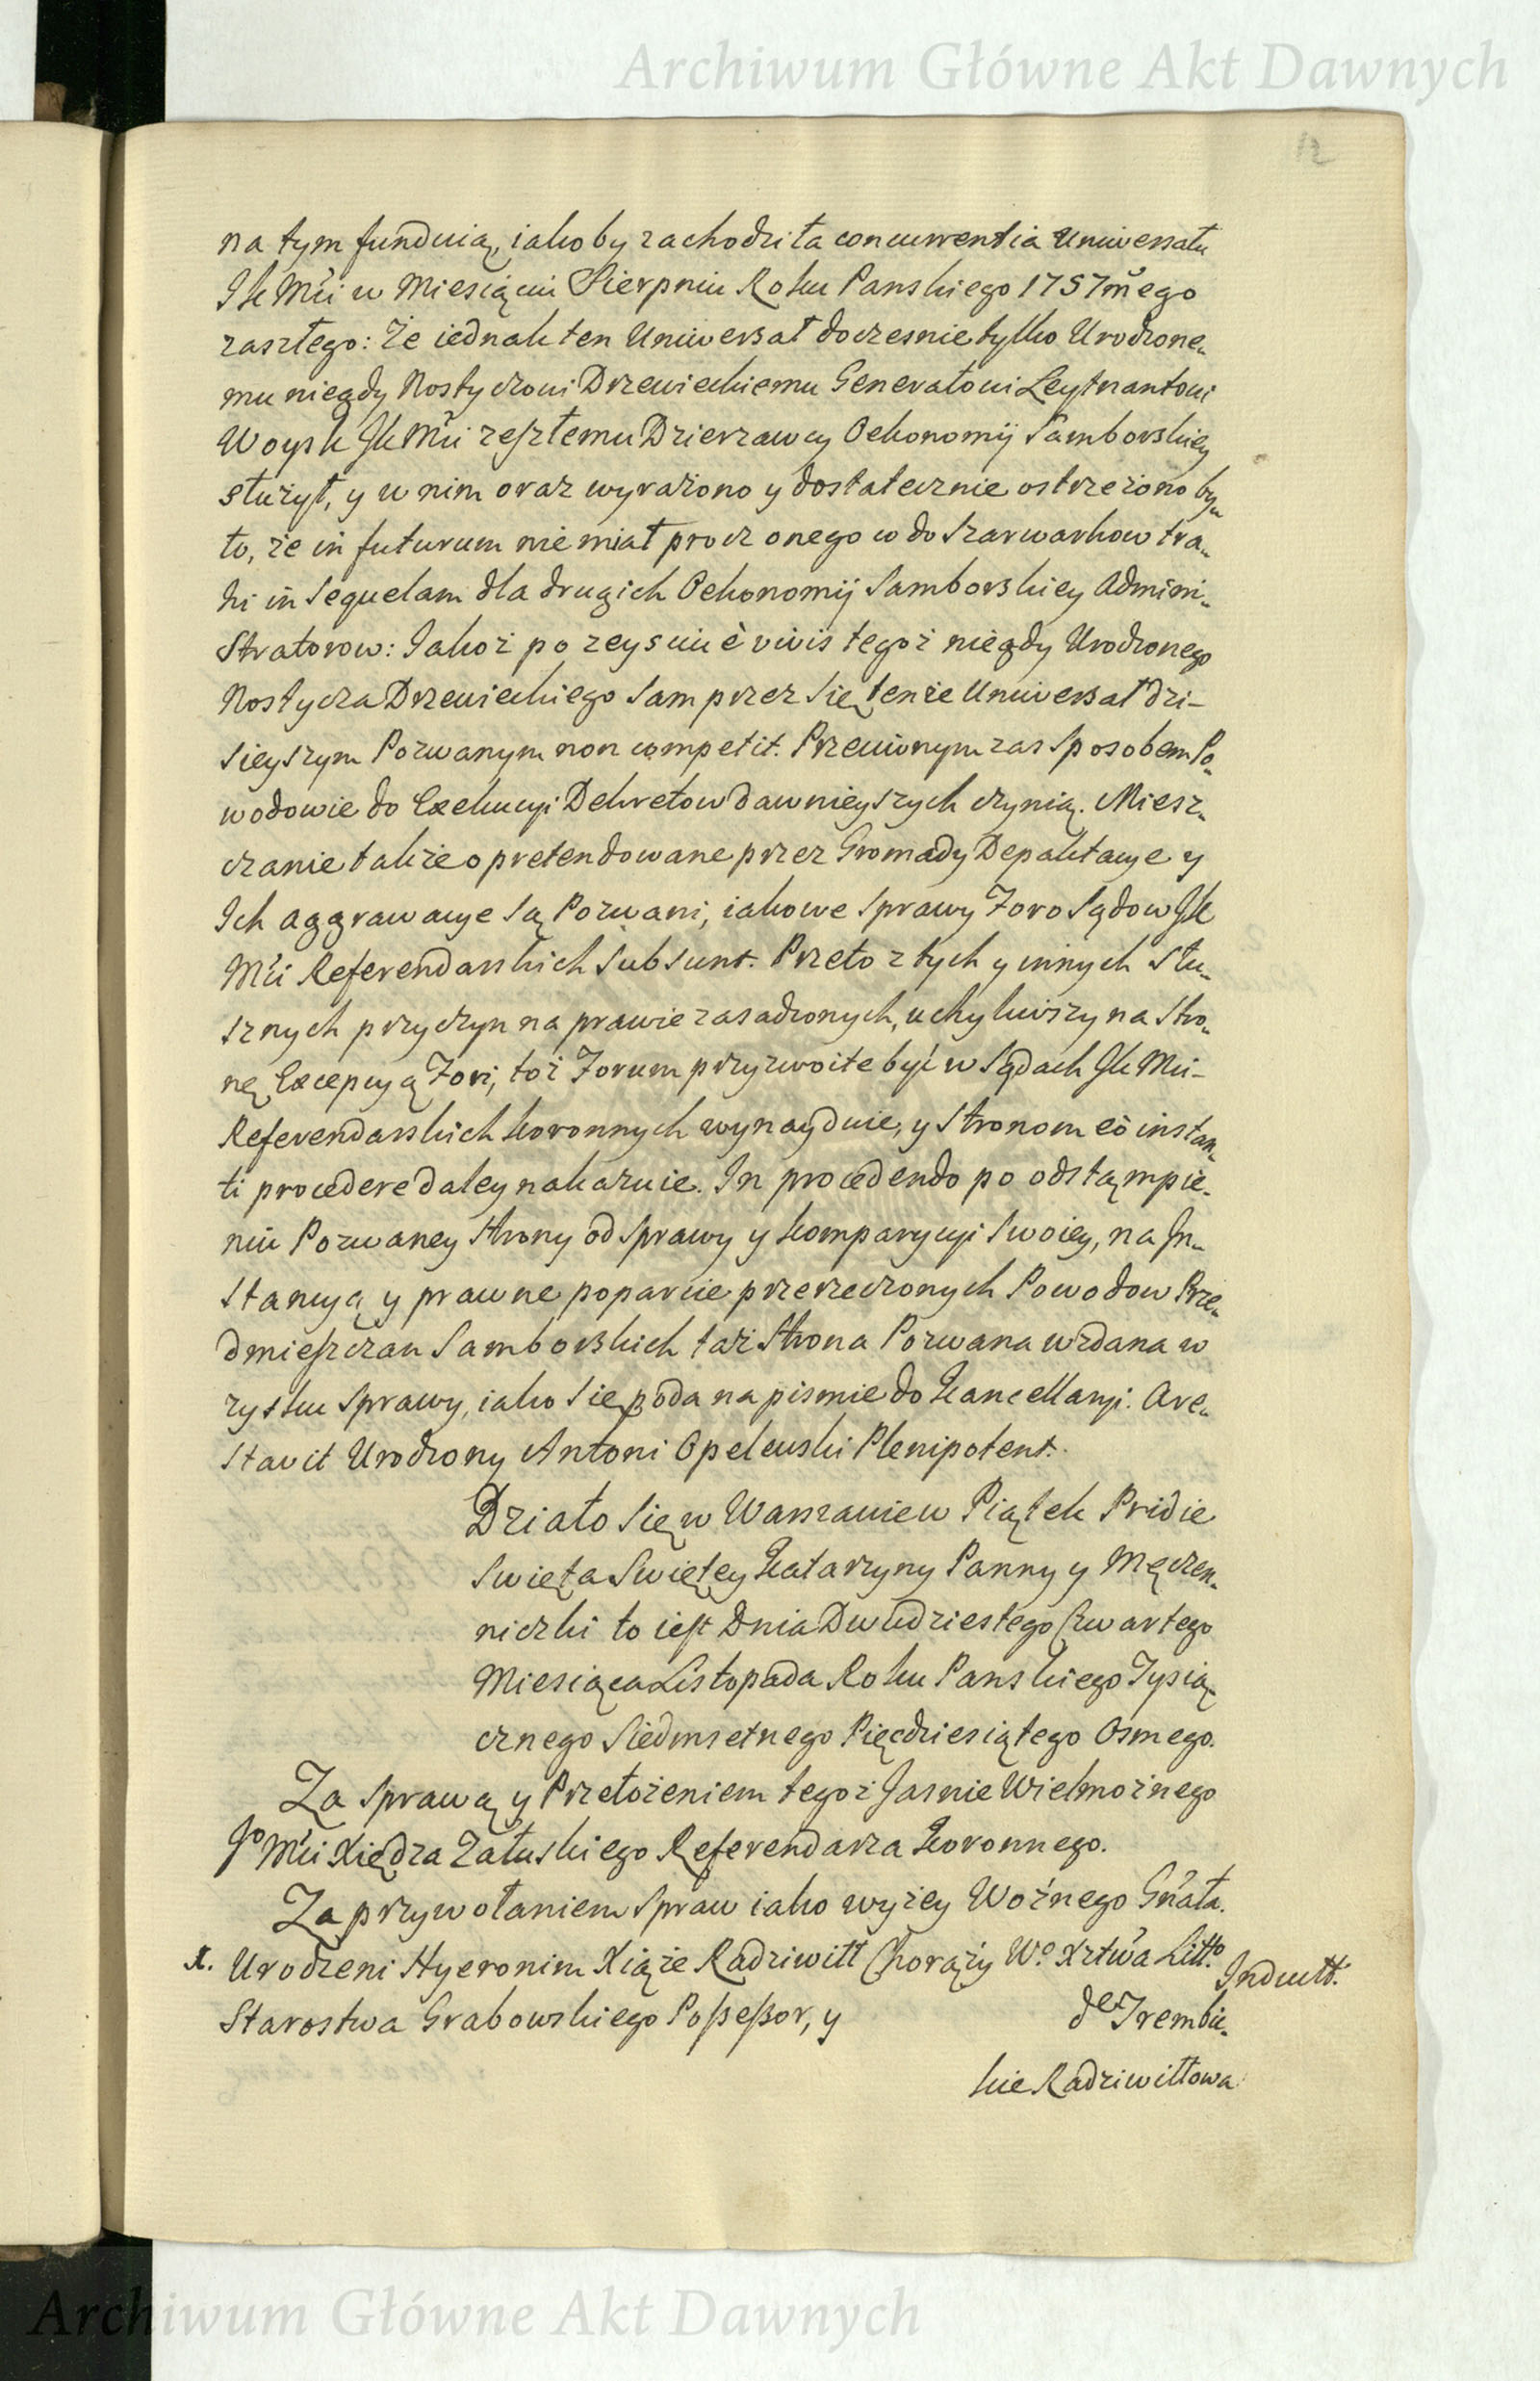 Archiwum Główne Akt Dawnych
12
na tym funduią, iakoby zachodziła concurrentia Uniwersału
JK Mći w Miesiącu Sierpniu Roku Panskiego 1757m̃ego
zaszłego: Że iednak ten Uniwersał doczesnie tylko Urodzone„
mu niegdy Nostyczowi Drzewieckiemu Generałowi Leytnantowi
Woysk JK Mći zeszłemu Dzierzawcy Oekonomij Samborskiey
służył, y w nim oraz wyrażono y dostatecznie ostrzeżono by„
ło, że in futurum nie miał procz onego co do Szarwarkow tra„
hi in Sequelam dla drugich Oekonomij Samborskiey Admini„
Stratorow: Jakoż po zeysciu è vivis tegoż niegdy Urodzonego
Nostycza Drzewieckiego Sam przez Się tenże Uniwersał dzi-
Sieyszym Pozwanym non competit. Przeciwnym zas Sposobem Po„
wodowie do Exekucyi Dekretow dawnieyszych czynią. Miesz„
czanie także o pretendowane przez Gromady Depaktacye y
Ich aggrawacye Są Pozwani, iakowe Sprawy Foro Sądow JK
Mći Referendarskich Subsunt. Przeto z tych y innych Słu„
sznych przyczyn na prawie zasadzonych, uchyliwszy na Stro„
nę Excepcyą Fori, toż Forum przyzwoite być w Sądach JK Mci-
Referendarskich koronnych wynayduie, y Stronom eò instan„
ti procedere daley nakazuie. In procedendo po odstąmpie„
niu Pozwaney Strony od Sprawy y komparycyi Swoiey, na In„
Stancyą y prawne poparcie przerzeczonych Powodow Prze„
dmieszczan Samborskich taż Strona Pozwana wzdana w
zysku Sprawy, iako Się poda na pismie do Kancellaryi. Are„
Stavit Urodzony Antoni Opelewski Plenipotent.
Działo Się w Warszawie w Piątek Pridie
Swięta Swiętey Katarzyny Panny y Męczen„
niczki to iest Dnia Dwudziestego Czwartego
Miesiąca Listopada Roku Panskiego Tysią„
cznego Siedmsetnego Pięcdziesiątego Osmego.
Za Sprawą y Przełożeniem tegoż Jasnie Wielmożnego
Jº Mći Xiędza Załuskiego Referendarza Koronnego.
Za przywołaniem Spraw iako wyżey Woźnego Gñała.
x. Urodzeni Hyeronim Xiąże Radziwiłł Chorąży Wº Xztwa Littº Indultt.
Starostwa Grabowskiego Possessor, y de Trembic„
kie Radziwiłłowa
Archiwum Główne Akt Dawnych